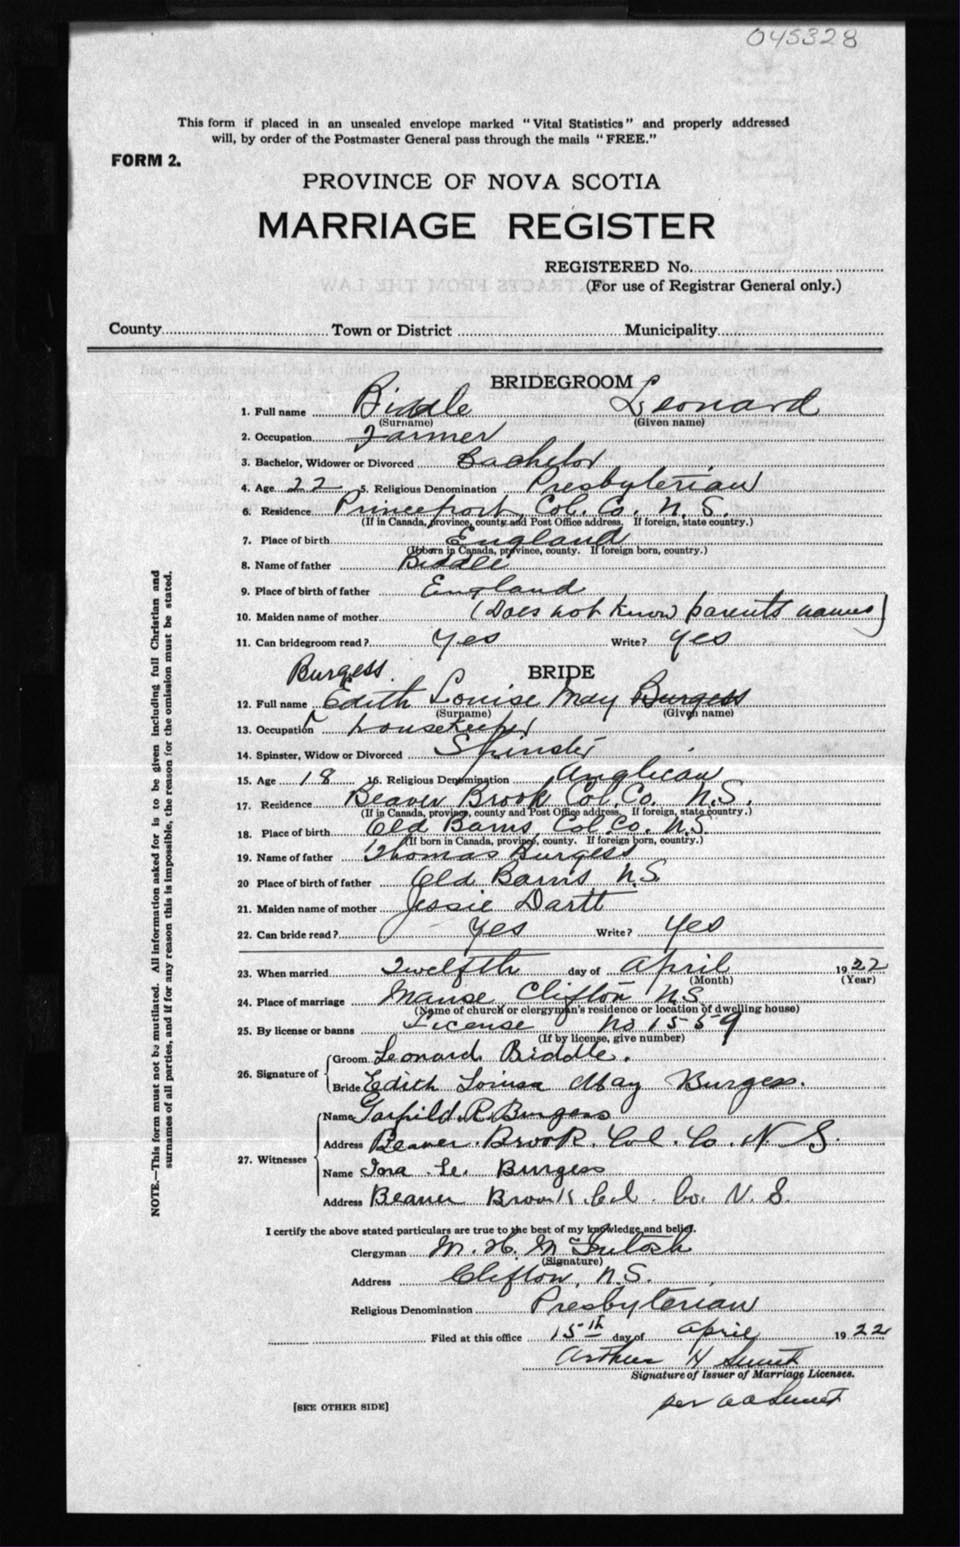 045328
This form if placed in an unsealed envelope marked "Vital Statistics" and properly addressed
will, by order of the Postmaster General pass through the mails "FREE."
FORM 2.
PROVINCE OF NOVA SCOTIA
MARRIAGE REGISTER
REGISTERED No.
(For use of Registrar General only.)
County Town or District Municipality
BRIDEGROOM
1. Full name Biddle Leonard
(Surname) (Given name)
2. Occupation Farmer
3. Bachelor, Widower or Divorced Bachelor
4. Age 22 5. Religious Denomination Presbyterian
6. Residence Princeport, Col. Co. N.S.
(If in Canada, province, county and Post Office address. If foreign, state country.)
7. Place of birth England
(If born in Canada, province, county. If foreign born, country.)
8. Name of father Biddle
9. Place of birth of father England
10. Maiden name of mother (Does not know parents names)
11. Can bridegroom read? Yes Write? Yes
Burgess.
BRIDE
12. Full name Edith Louise May Burgess
(Surname) (Given name)
13. Occupation housekeeper
14. Spinster, Widow or Divorced Spinster
15. Age 18 16. Religious Denomination Anglican
17. Residence Beaver Brook Col. Co. N.S.
(If in Canada, province, county and Post Office address. If foreign, state country.)
18. Place of birth Old Barns, Col. Co. N.S.
(If born in Canada, province, county. If foreign born, country.)
19. Name of father Thomas Burgess
20 Place of birth of father Old Barns N.S
21. Maiden name of mother Jessie Dartt
22. Can bride read? Yes Write? Yes
23. When married Twelfth day of April 1922
(Month) (Year)
24. Place of marriage Manse, Clifton N.S.
(Name of church or clergyman's residence or location of dwelling house)
25. By license or banns License No 1559
(If by license, give number)
26. Signature of Groom Leonard Biddle.
Bride Edith Louisa May Burgess.
27. Witnesses Name Garfild R. Burgess
Address Beaver Brook. Col. Co. N S.
Name Ina Burgess
Address Beaver Brook Col. Co. N. S.
I certify the above stated particulars are true to the best of my knowledge and belief.
Clergyman M. H. McIntosh
(Signature)
Address Clifton, N.S.
Religious Denomination Presbyterian
Filed at this office 15th day of April 1922
Arthur H
Signature of Issuer of Marriage Licenses.
per
[SEE OTHER SIDE]
NOTE.—This form must not be mutilated. All information asked for is to be given including full Christian and
surnames of all parties, and if for any reason this is impossible, the reason for the omission must be stated.